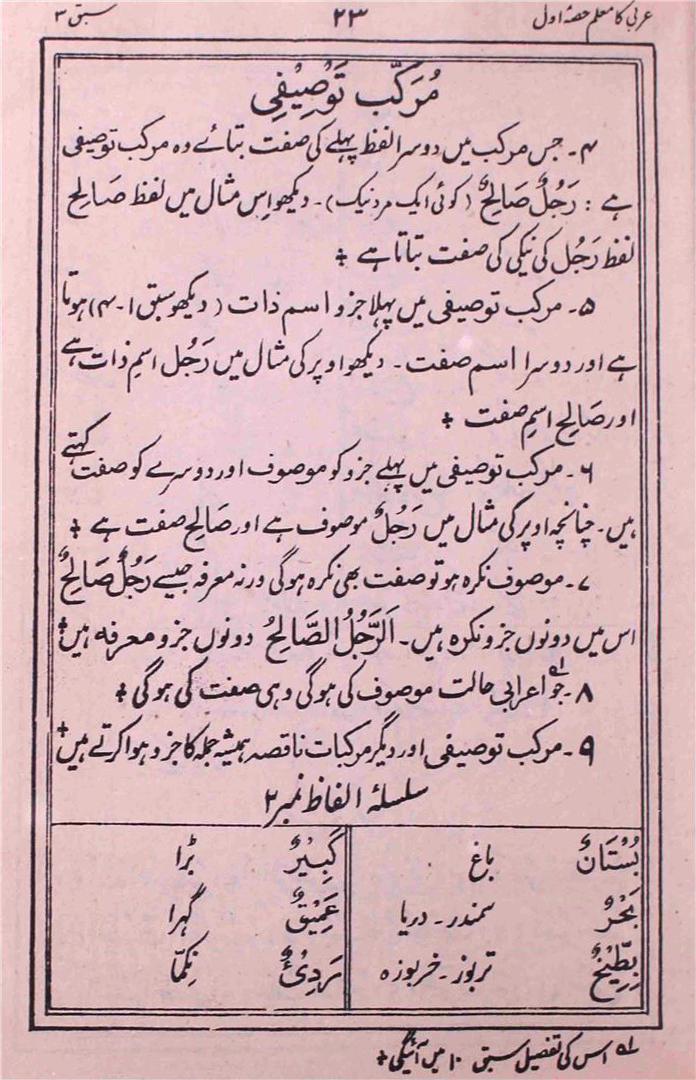 عربی کا معلم حصۂ اول ۲۳ سبق ۳
مُرَکَّب تَوْصِیْفِی
۴۔ جس مرکب میں دوسرا لفظ پہلے کی صفت بتائے وہ مرکب توصیفی
ہے : رَجُلٌ صَالِحٌ (کوئی ایک مرد نیک)۔ دیکھو اِس مثال میں لفظ صَالِح
لفظ رَجُل کی نیکی کی صفت بتاتا ہے ÷
۵۔ مرکب توصیفی میں پہلا جزو اسم ذات (دیکھو سبق ۱-۴) ہوتا
ہے اور دوسرا اسم صفت۔ دیکھو اوپر کی مثال میں رَجُل اسمِ ذات ہے
اور صَالِح اسمِ صفت ÷
۶۔ مرکب توصیفی میں پہلے جزو کو موصوف اور دوسرے کو صفت کہتے
ہیں۔ چنانچہ اوپر کی مثال میں رَجُلٌ موصوف ہے اور صَالِح صفت ہے ÷
۷۔ موصوف نکرہ ہو تو صفت بھی نکرہ ہوگی ورنہ معرفہ جیسے رَجُلٌ صَالِحٌ
اس میں دونوں جزو نکرہ ہیں۔ اَلرَّجُلُ الصَّالِحُ دونوں جزو معرفہ ہیں ÷
۸۔ جو اعرابی حالت موصوف کی ہوگی وہی صفت کی ہوگی ÷
۹۔ مرکب توصیفی اور دیگر مرکبات ناقصہ ہمیشہ جملہ کا جزو ہوا کرتے ہیں ÷
سلسلۂ الفاظ نمبر ۲
بُسْتَانٌ باغ کَبِیْرٌ بڑا
بَحْرٌ سمندر۔ دریا عَمِیْقٌ گہرا
بِطِّیْخٌ تربوز۔ خربوزہ رَدِیْءٌ نِکمّا
لہ اس کی تفصیل سبق ۱۰ میں آئیگی ÷